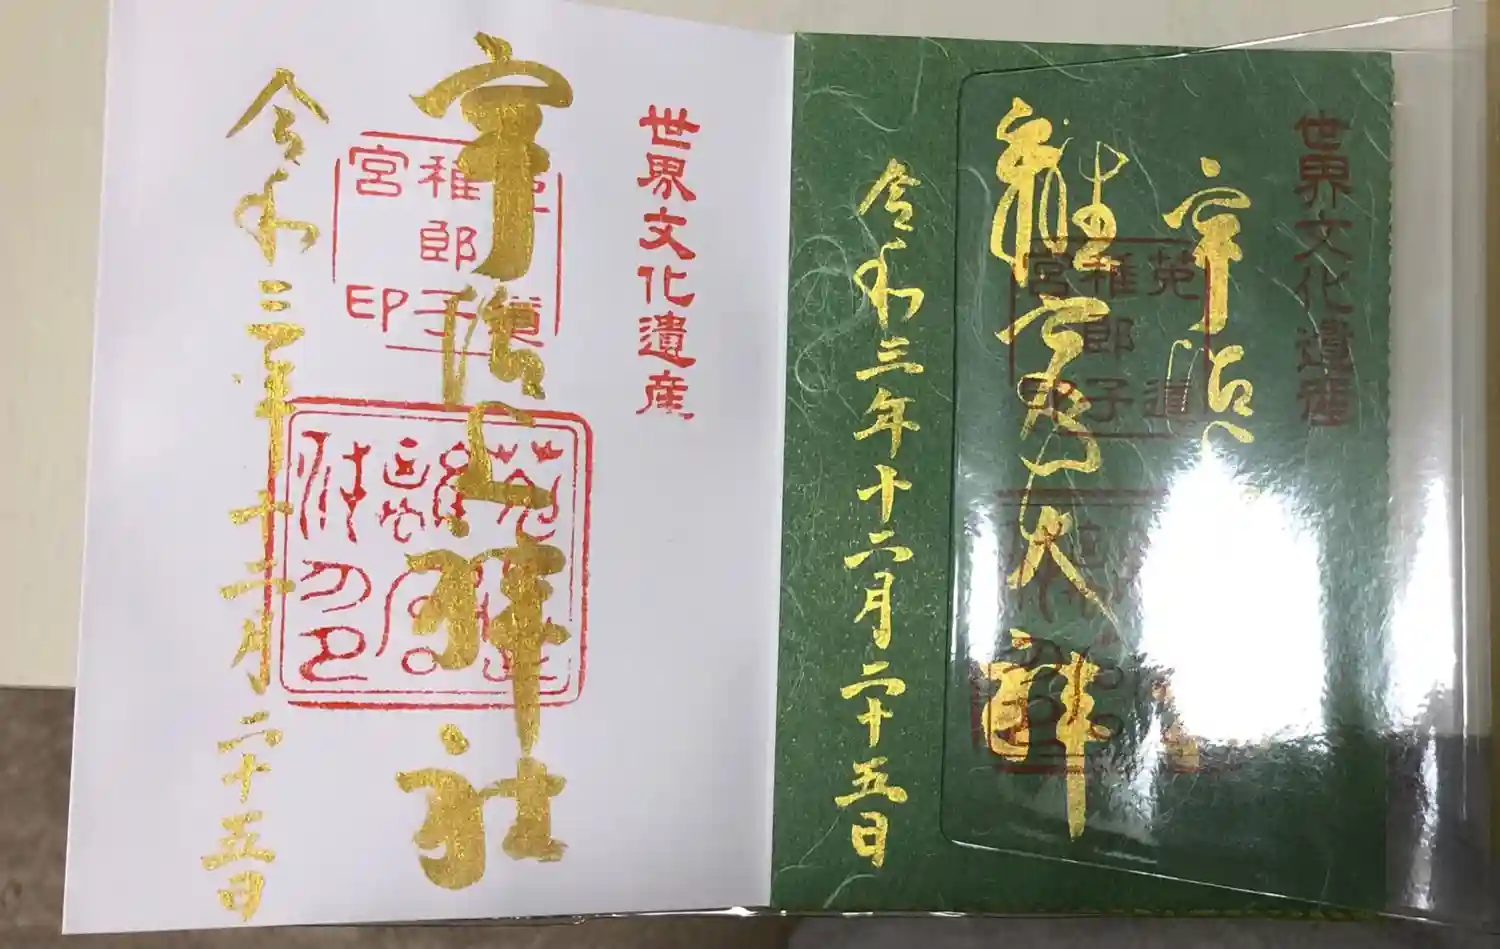 世界文化遺産
宇治
菟道
稚郎子
宮印
令和三年十二月二十五日
世界文化遺産
宇治上神社
菟道
稚郎子
宮印
令和三年十二月二十五日